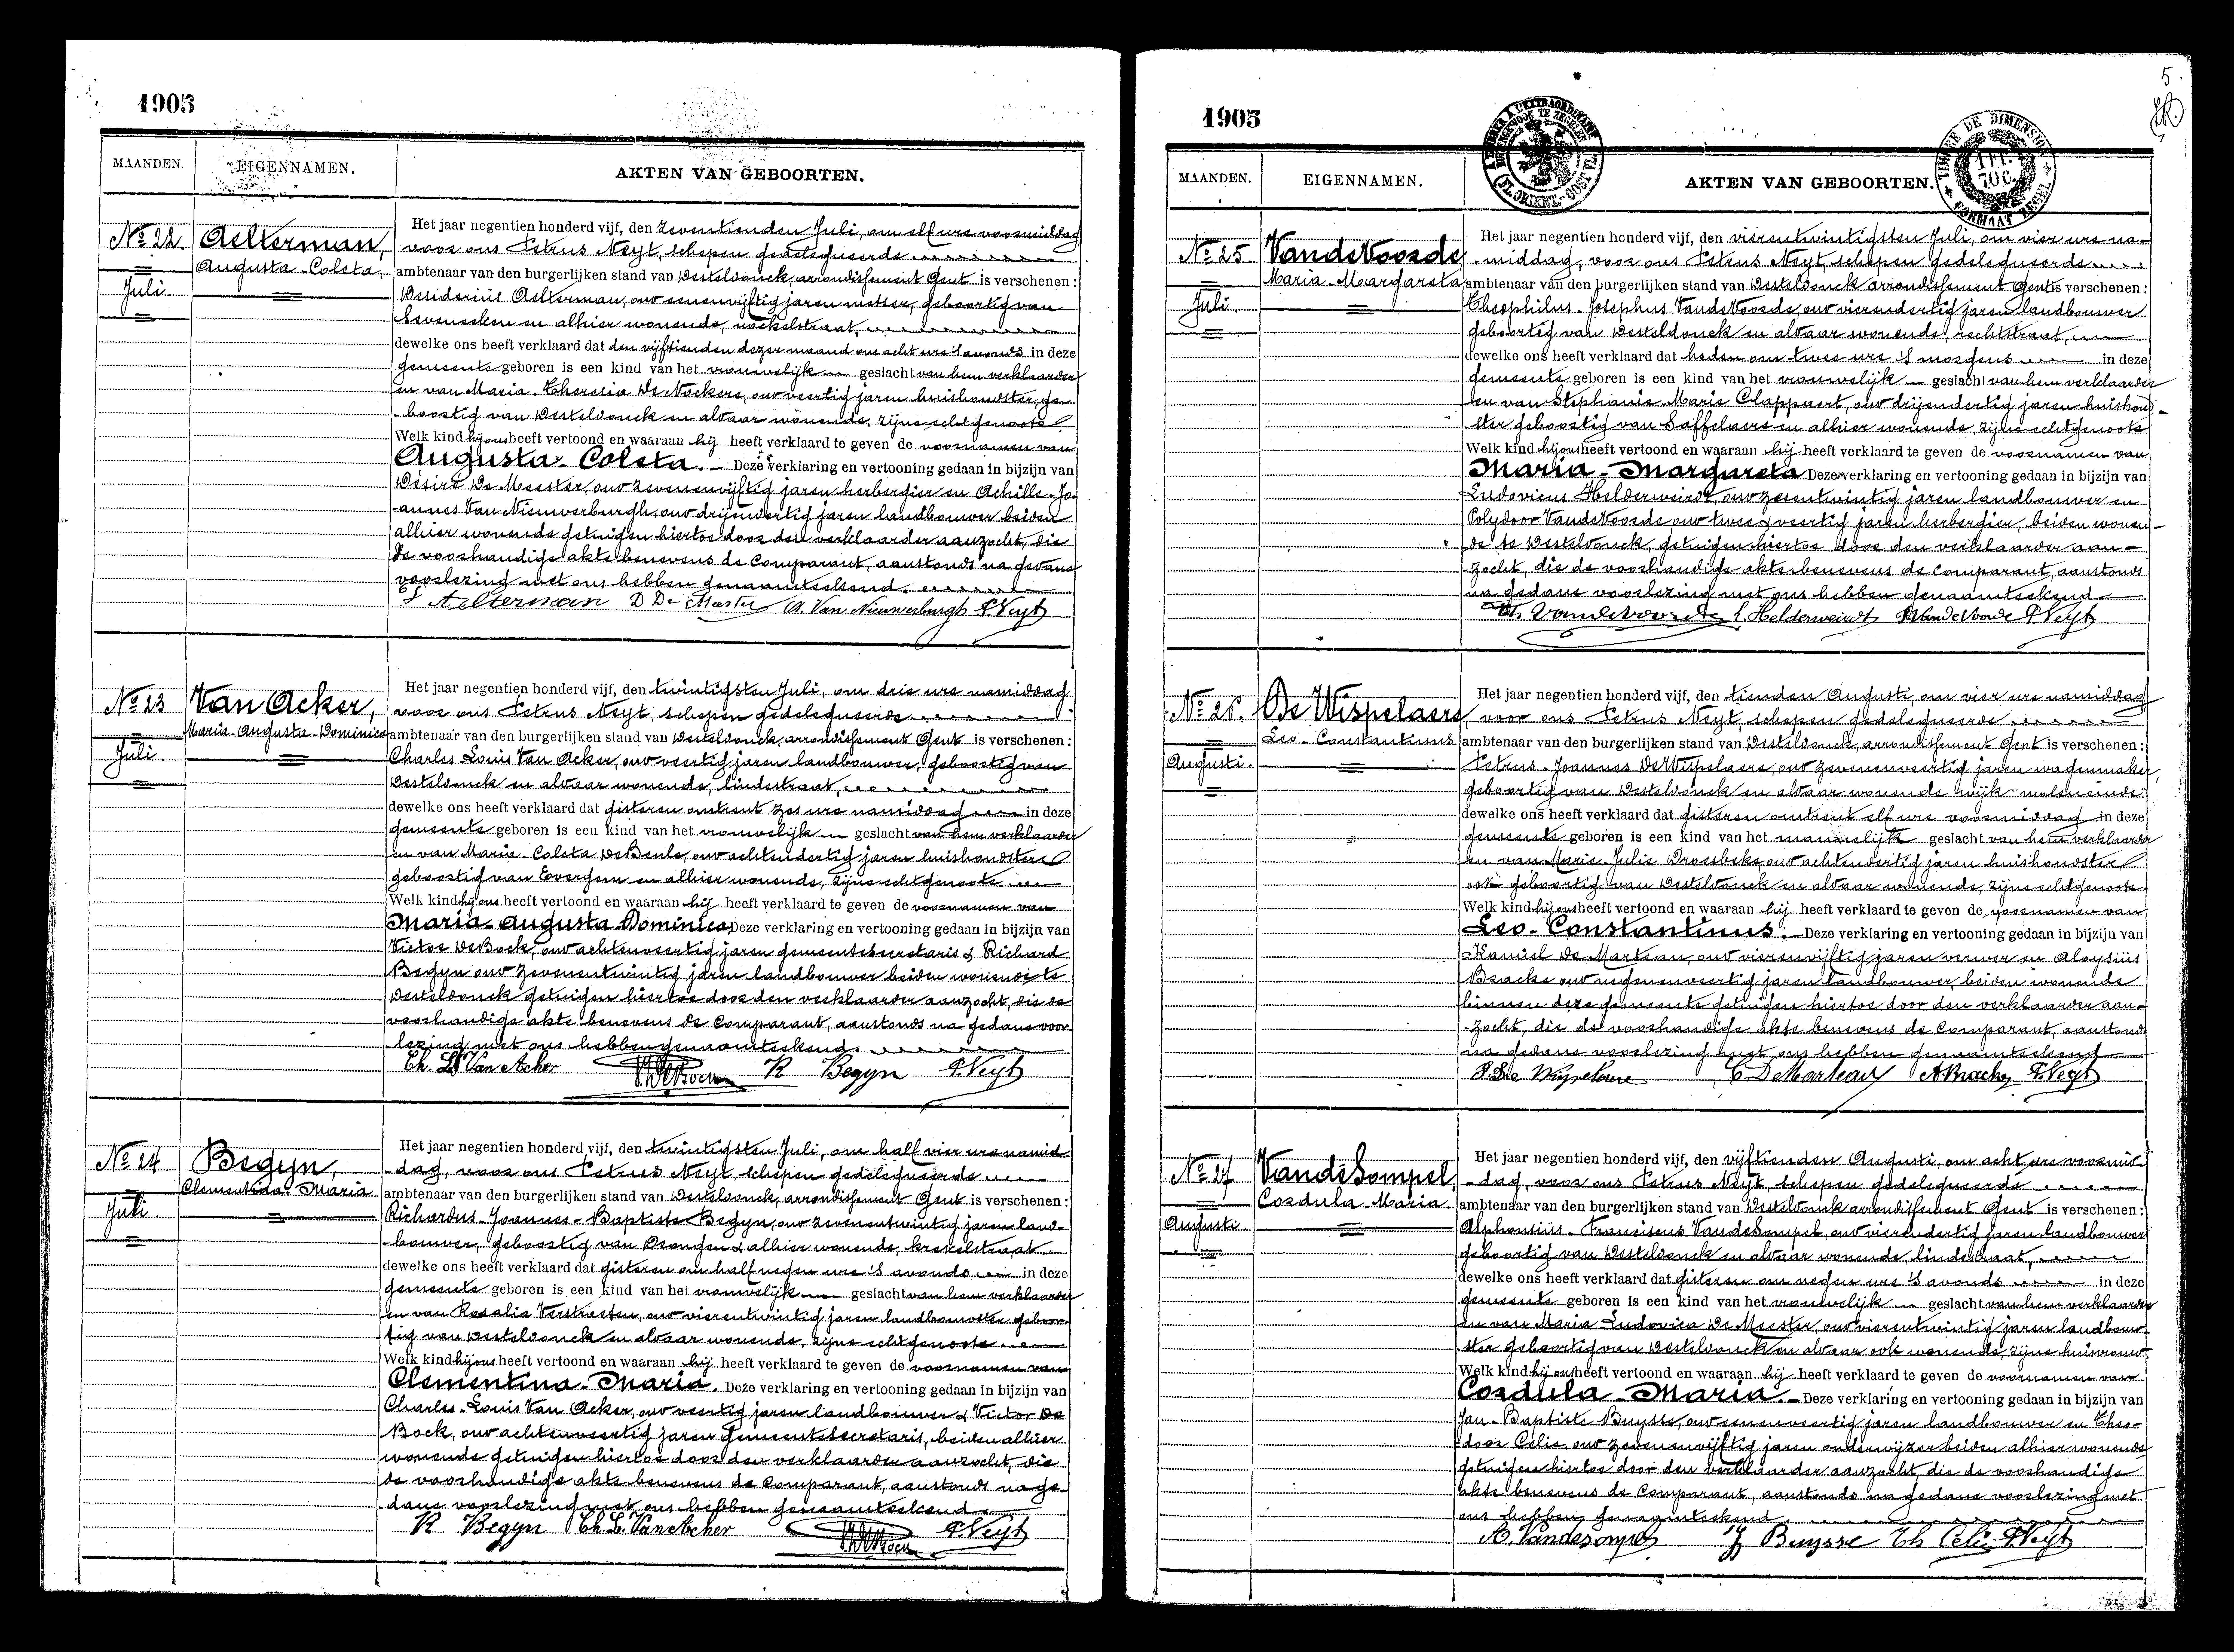 1905
MAANDEN.
EIGENNAMEN.
AKTEN VAN GEBOORTEN.
No 22.
Juli
Aelterman,
Augusta-Coleta.
Het jaar negentien honderd vijf, den zeventienden Juli, om elf ure voormiddag
voor ons Petrus Neyt, schepen gedelegueerde
ambtenaar van den burgerlijken stand van Desteldonck, arrondissement Gent is verschenen:
Desiderius Aelterman, oud eenenvijftig jaren metser, geboortig van
Seveneeken en alhier wonende,
dewelke ons heeft verklaard dat den vijftienden dezer maand om acht ure 's avonds in deze
gemeente geboren is een kind van het vrouwelijk geslacht van hem verklaarder
en van Maria-Theresia De Nockere, oud veertig jaren huishoudster, ge-
boortig van Desteldonck en aldaar wonende, zijne echtgenoote
Welk kind hij ons heeft vertoond en waaraan hij heeft verklaard te geven de voornamen van
Augusta-Coleta. Deze verklaring en vertooning gedaan in bijzijn van
Désiré De Meester, oud zevenenvijftig jaren herbergier en Achille-Jo-
annes Van Nieuwerburgh, oud drijenveertig jaren landbouwer beiden
alhier wonende getuigen hiertoe door den verklaarder aanzocht, die
de voorhandige akte benevens de Comparant, aanstonds na gedane
voorlezing met ons hebben genaamteekend.
Aelterman D De Meester A. Van Nieuwerburgh P. Neyt
No 23
Juli
Van Acker,
Maria-Augusta-Dominica
Het jaar negentien honderd vijf, den twintigsten Juli, om drie ure namiddag
voor ons Petrus Neyt, schepen gedelegueerde
ambtenaar van den burgerlijken stand van Desteldonck, arrondissement Gent is verschenen:
Charles Louis Van Acker, oud veertig jaren landbouwer, geboortig van
Desteldonck en aldaar wonende, lindestraat,
dewelke ons heeft verklaard dat gisteren omtrent zes ure namiddag in deze
gemeente geboren is een kind van het vrouwelijk geslacht van hem verklaarder
en van Maria-Coleta De Beule, oud achtendertig jaren huishoudster
geboortig van Evergem en alhier wonende, zijne echtgenoote
Welk kind hij ons heeft vertoond en waaraan hij heeft verklaard te geven de voornamen van
Maria-Augusta-Dominica Deze verklaring en vertooning gedaan in bijzijn van
Victor De Bock, oud achtenveertig jaren gemeentesecretaris & Richard
Begyn oud zevenentwintig jaren landbouwer beiden wonende te
Desteldonck getuigen hiertoe door den verklaarder aanzocht, die de
voorhandige akte benevens de Comparant, aanstonds na gedane voor-
lezing met ons hebben genaamteekend.
Ch. L. Van Acker R Begyn P. Neyt
No 24
Juli
Begyn,
Clementina-Maria
Het jaar negentien honderd vijf, den twintigsten Juli, om half vier ure namid-
dag, voor ons Petrus Neyt, schepen gedelegueerde
ambtenaar van den burgerlijken stand van Desteldonck, arrondissement Gent is verschenen:
Richardus-Joannes-Baptiste Begyn, oud zevenentwintig jaren land-
bouwer, geboortig van Drongen & alhier wonende, krekelstraat
dewelke ons heeft verklaard dat gisteren om half negen ure 's avonds in deze
gemeente geboren is een kind van het vrouwelijk geslacht van hem verklaarder
en van Rosalia Verstraeten, oud vierentwintig jaren landbouwster geboor-
tig van Desteldonck en aldaar wonende, zijne echtgenoote
Welk kind hij ons heeft vertoond en waaraan hij heeft verklaard te geven de voornamen van
Clementina-Maria. Deze verklaring en vertooning gedaan in bijzijn van
Charles-Louis Van Acker, oud veertig jaren landbouwer & Victor De
Bock, oud achtenveertig jaren gemeentesecretaris, beiden alhier
wonende getuigen hiertoe door den verklaarder aanzocht, die
de voorhandige akte benevens de Comparant, aanstonds na ge-
dane voorlezing met ons hebben genaamteekend.
R Begyn Ch. L. Van Acker P. Neyt
5.
1905
MAANDEN.
EIGENNAMEN.
AKTEN VAN GEBOORTEN.
No 25
Juli
VandeVoorde
Maria-Margareta
Het jaar negentien honderd vijf, den vierentwintigsten Juli, om vier ure na-
middag, voor ons Petrus Neyt, schepen gedelegueerde
ambtenaar van den burgerlijken stand van Desteldonck arrondissement Gent is verschenen:
Theophilus-Josephus VandeVoorde oud vierendertig jaren landbouwer
geboortig van Desteldonck en aldaar wonende, rechtstraat,
dewelke ons heeft verklaard dat heden om twee ure 's morgens in deze
gemeente geboren is een kind van het vrouwelijk geslacht van hem verklaarder
en van Stephanie-Marie Clappaert, oud drijendertig jaren huishoud-
ster geboortig van Saffelaere en alhier wonende, zijne echtgenoote
Welk kind hij ons heeft vertoond en waaraan hij heeft verklaard te geven de voornamen van
Maria-Margareta Deze verklaring en vertooning gedaan in bijzijn van
Ludovicus Helderweirdt oud zesentwintig jaren landbouwer en
Polydoor VandeVoorde oud twee & veertig jaren herbergier, beiden wonen-
de te Desteldonck, getuigen hiertoe door den verklaarder aan-
zocht, die de voorhandige akte benevens de comparant, aanstonds
na gedane voorlezing met ons hebben genaamteekend
Th Vandevoorde L. Helderweirdt P. VandeVoorde P. Neyt
No 26.
Augusti.
De Wispelaere
Leo-Constantinus
Het jaar negentien honderd vijf, den tienden Augusti, om vier ure namiddag
voor ons Petrus Neyt, schepen gedelegueerde
ambtenaar van den burgerlijken stand van Desteldonck, arrondissement Gent is verschenen:
Petrus-Joannes De Wispelaere, oud zevenenveertig jaren wagenmaker,
geboortig van Desteldonck en aldaar wonende wijk moleneinde
dewelke ons heeft verklaard dat gisteren omtrent elf ure voormiddag in deze
gemeente geboren is een kind van het mannelijk geslacht van hem verklaarder
en van Marie-Julie Droesbeke oud achtendertig jaren huishoudster
ook geboortig van Desteldonck en aldaar wonende, zijne echtgenoote.
Welk kind hij ons heeft vertoond en waaraan hij heeft verklaard te geven de voornamen van
Leo-Constantinus. Deze verklaring en vertooning gedaan in bijzijn van
Kamiel De Marteau, oud vierenvijftig jaren verwer en Aloysius
Braeke oud negenenveertig jaren landbouwer, beiden wonende
binnen deze gemeente getuigen hiertoe door den verklaarder aan-
zocht, die de voorhandige akte benevens de Comparant, aanstonds
na gedane voorlezing met ons hebben genaamteekend
P. De Wispelaere C DeMarteau A Braeke P. Neyt
No 27
Augusti.
VandeSompel,
Cordula-Maria.
Het jaar negentien honderd vijf, den vijftienden Augusti, om acht ure voormid-
dag, voor ons Petrus Neyt, schepen gedelegueerde
ambtenaar van den burgerlijken stand van Desteldonck arrondissement Gent is verschenen:
Alphonsius-Franciscus VandeSompel, oud vierendertig jaren landbouwer
geboortig van Desteldonck en aldaar wonende, lindestraat,
dewelke ons heeft verklaard dat gisteren om negen ure 's avonds in deze
gemeente geboren is een kind van het vrouwelijk geslacht van hem verklaarder
en van Maria-Ludovica De Meester, oud vierentwintig jaren landbouw-
ster geboortig van Desteldonck en aldaar ook wonende, zijne huisvrouw
Welk kind hij ons heeft vertoond en waaraan hij heeft verklaard te geven de voornamen van
Cordula-Maria. Deze verklaring en vertooning gedaan in bijzijn van
Jan-Baptiste Buysse, oud eenenveertig jaren landbouwer en Theo-
door Celie, oud zevenenvijftig jaren onderwijzer beiden alhier wonende
getuigen hiertoe door den verklaarder aanzocht, die de voorhandige
akte benevens de Comparant, aanstonds na gedane voorlezing met
ons hebben genaamteekend.
A. Vandesompel Buysse Th Celie P. Neyt